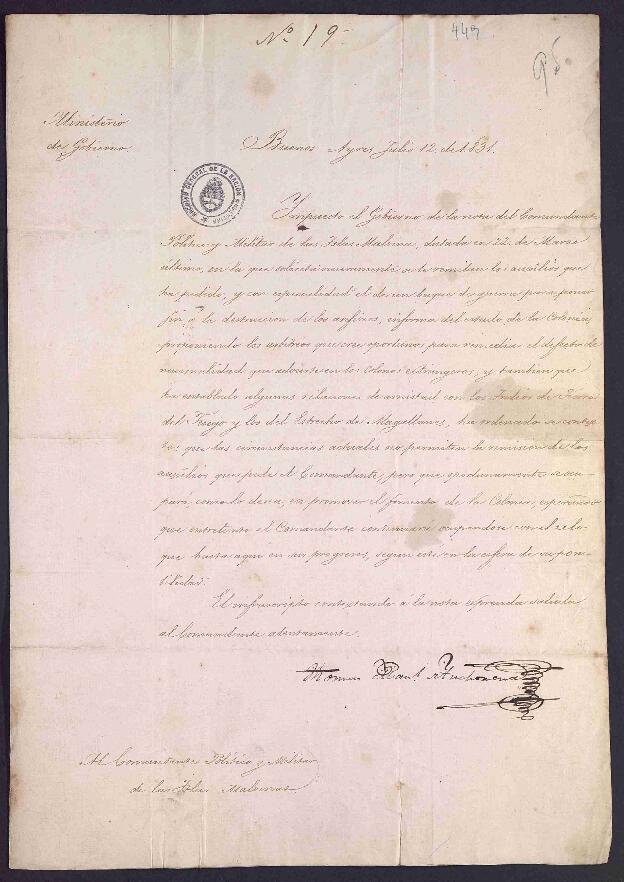 Nº 19
449
95
Ministerio
de Gobierno.
Buenos Ayres Julio 12 de 1831.
ARCHIVO GENERAL DE LA NACION
Impuesto el Gobierno de la nota del Comandante
Politico y Militar de las Islas Malvinas, datada en 22 de Marzo
último, en la que solicita nuevamente se le remitan los auxilios que
ha pedido, y con especialidad el de un buque de guerra para poner
fin á la destruccion de los anfivios, informa del estado de la Colonia,
proponiendo los arbitrios que cree oportunos para remediar el defecto de
nacionalidad que advierte en los Colonos extrangeros, y tambien que
ha entablado algunas relaciones de amistad con los Indios de Tierra
del Fuego y los del Estrecho de Magallanes, ha ordenado se contes-
te: que las circunstancias actuales no permiten la remision de los
auxilios que pide el Comandante, pero que oportunamente se ocu-
pará como lo desea, en promover el fomento de la Colonia, esperando
que entretanto el Comandante continuará ocupandose con el zelo
que hasta aqui en su progreso, segun esté en la esfera de su posi-
bilidad.
El infrascripto contextando á la nota expresada saluda
al Comandante atentamente.
Tomas Man.l de Anchorena
Al Comandante Politico y Militar
de las Islas Malvinas.